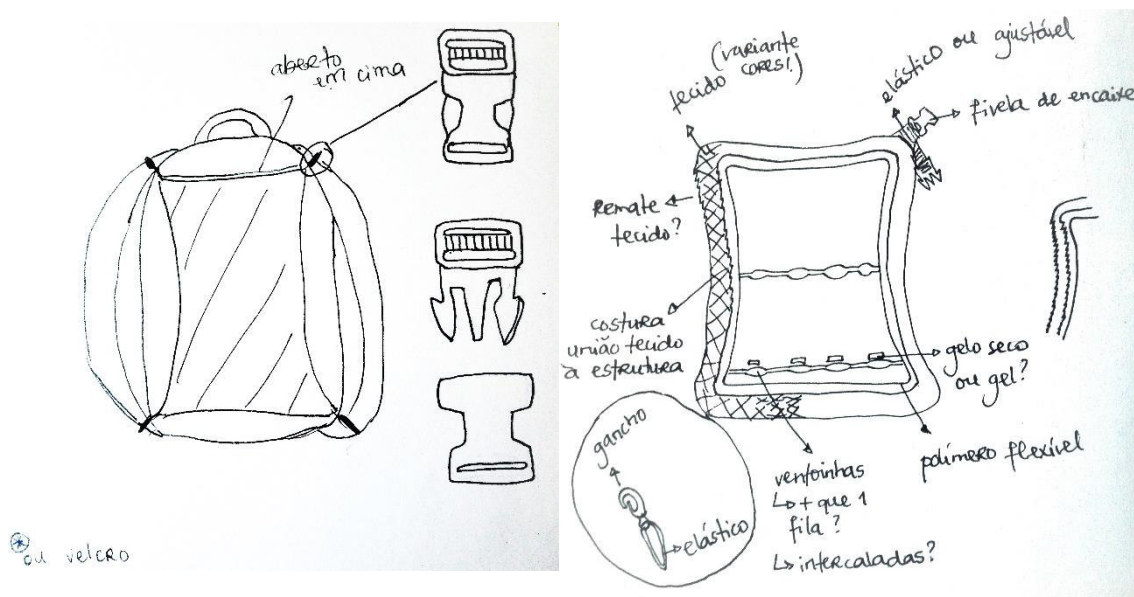 aberto
em cima
ou velcro
(variante
cores!)
tecido
elástico ou ajustável
fivela de encaixe
Remate
tecido?
costura
união tecido
à estrutura
gelo seco
ou gel?
polímero flexível
ventoinhas
↳ + que 1
fila?
↳ intercaladas?
gancho
elástico